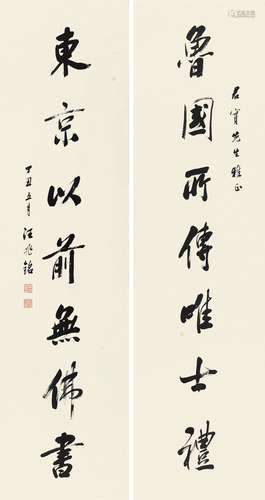 魯國所傳唯士禮
君實先生雅正
東京以前無佛書
丁丑五月 汪兆銘